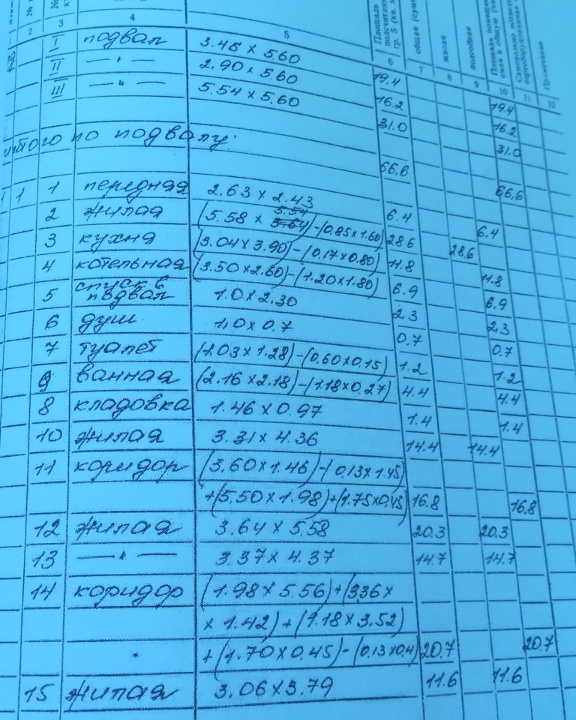 2 3 4 5 6 7 8 9 10 11 12
I подвал 3.48 x 5.60 19.4 19.4
II — " — 2.90 x 5.60 16.2 16.2
III — " — 5.54 x 5.60 31.0 31.0
Итого по подвалу: 66.6 66.6
1 1 передняя 2.63 x 2.43 6.4 6.4
2 жилая (5.58 x 5.54)-(0.85x1.60) 28.6 28.6
3 кухня (3.04x3.90)-(0.17x0.80) 11.8 11.8
4 котельная (3.50x2.60)-(1.20x1.80) 6.9 6.9
5 спуск в подвал 1.0 x 2.30 2.3 2.3
6 душ 1.0 x 0.7 0.7 0.7
7 туалет (1.03x1.28)-(0.60x0.15) 1.2 1.2
9 ванная (2.16x2.18)-(1.18x0.27) 4.4 4.4
8 кладовка 1.46 x 0.97 1.4 1.4
10 жилая 3.31 x 4.36 14.4 14.4
11 коридор (3.60x1.46)-(0.13x1.45)
+(5.50x1.98)+(1.75x0.45) 16.8 16.8
12 жилая 3.64 x 5.58 20.3 20.3
13 — " — 3.37 x 4.37 14.7 14.7
14 коридор (1.98 x 5.56)+(336 x
x 1.42)+(1.18 x 3.52)
+(1.70x0.45)-(0.13x0.4) 20.7 20.7
15 жилая 3.06x3.79 11.6 11.6